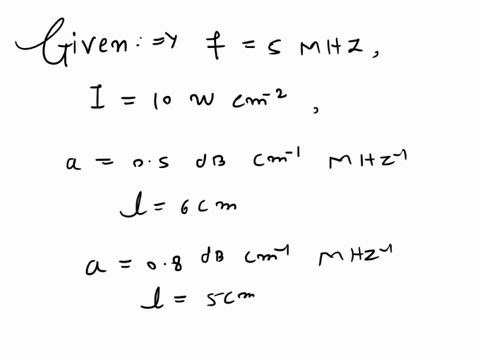 Given: ⇒ f = 5 MHZ,
I = 10 W cm⁻²,
a = 0.5 dB cm⁻¹ MHZ⁻¹
l = 6cm
a = 0.8 dB cm⁻¹ MHZ⁻¹
l = 5cm